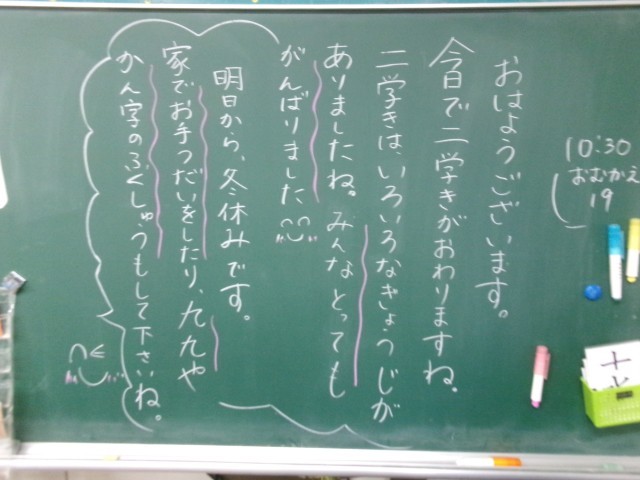 おはようございます。
今日で二学きがおわりますね。
二学きは、いろいろなぎょうじが
ありましたね。みんなとっても
がんばりました
明日から、冬休みです。
家でお手つだいをしたり、九九や
かん字のふくしゅうもして下さいね。
10:30
おむかえ
19